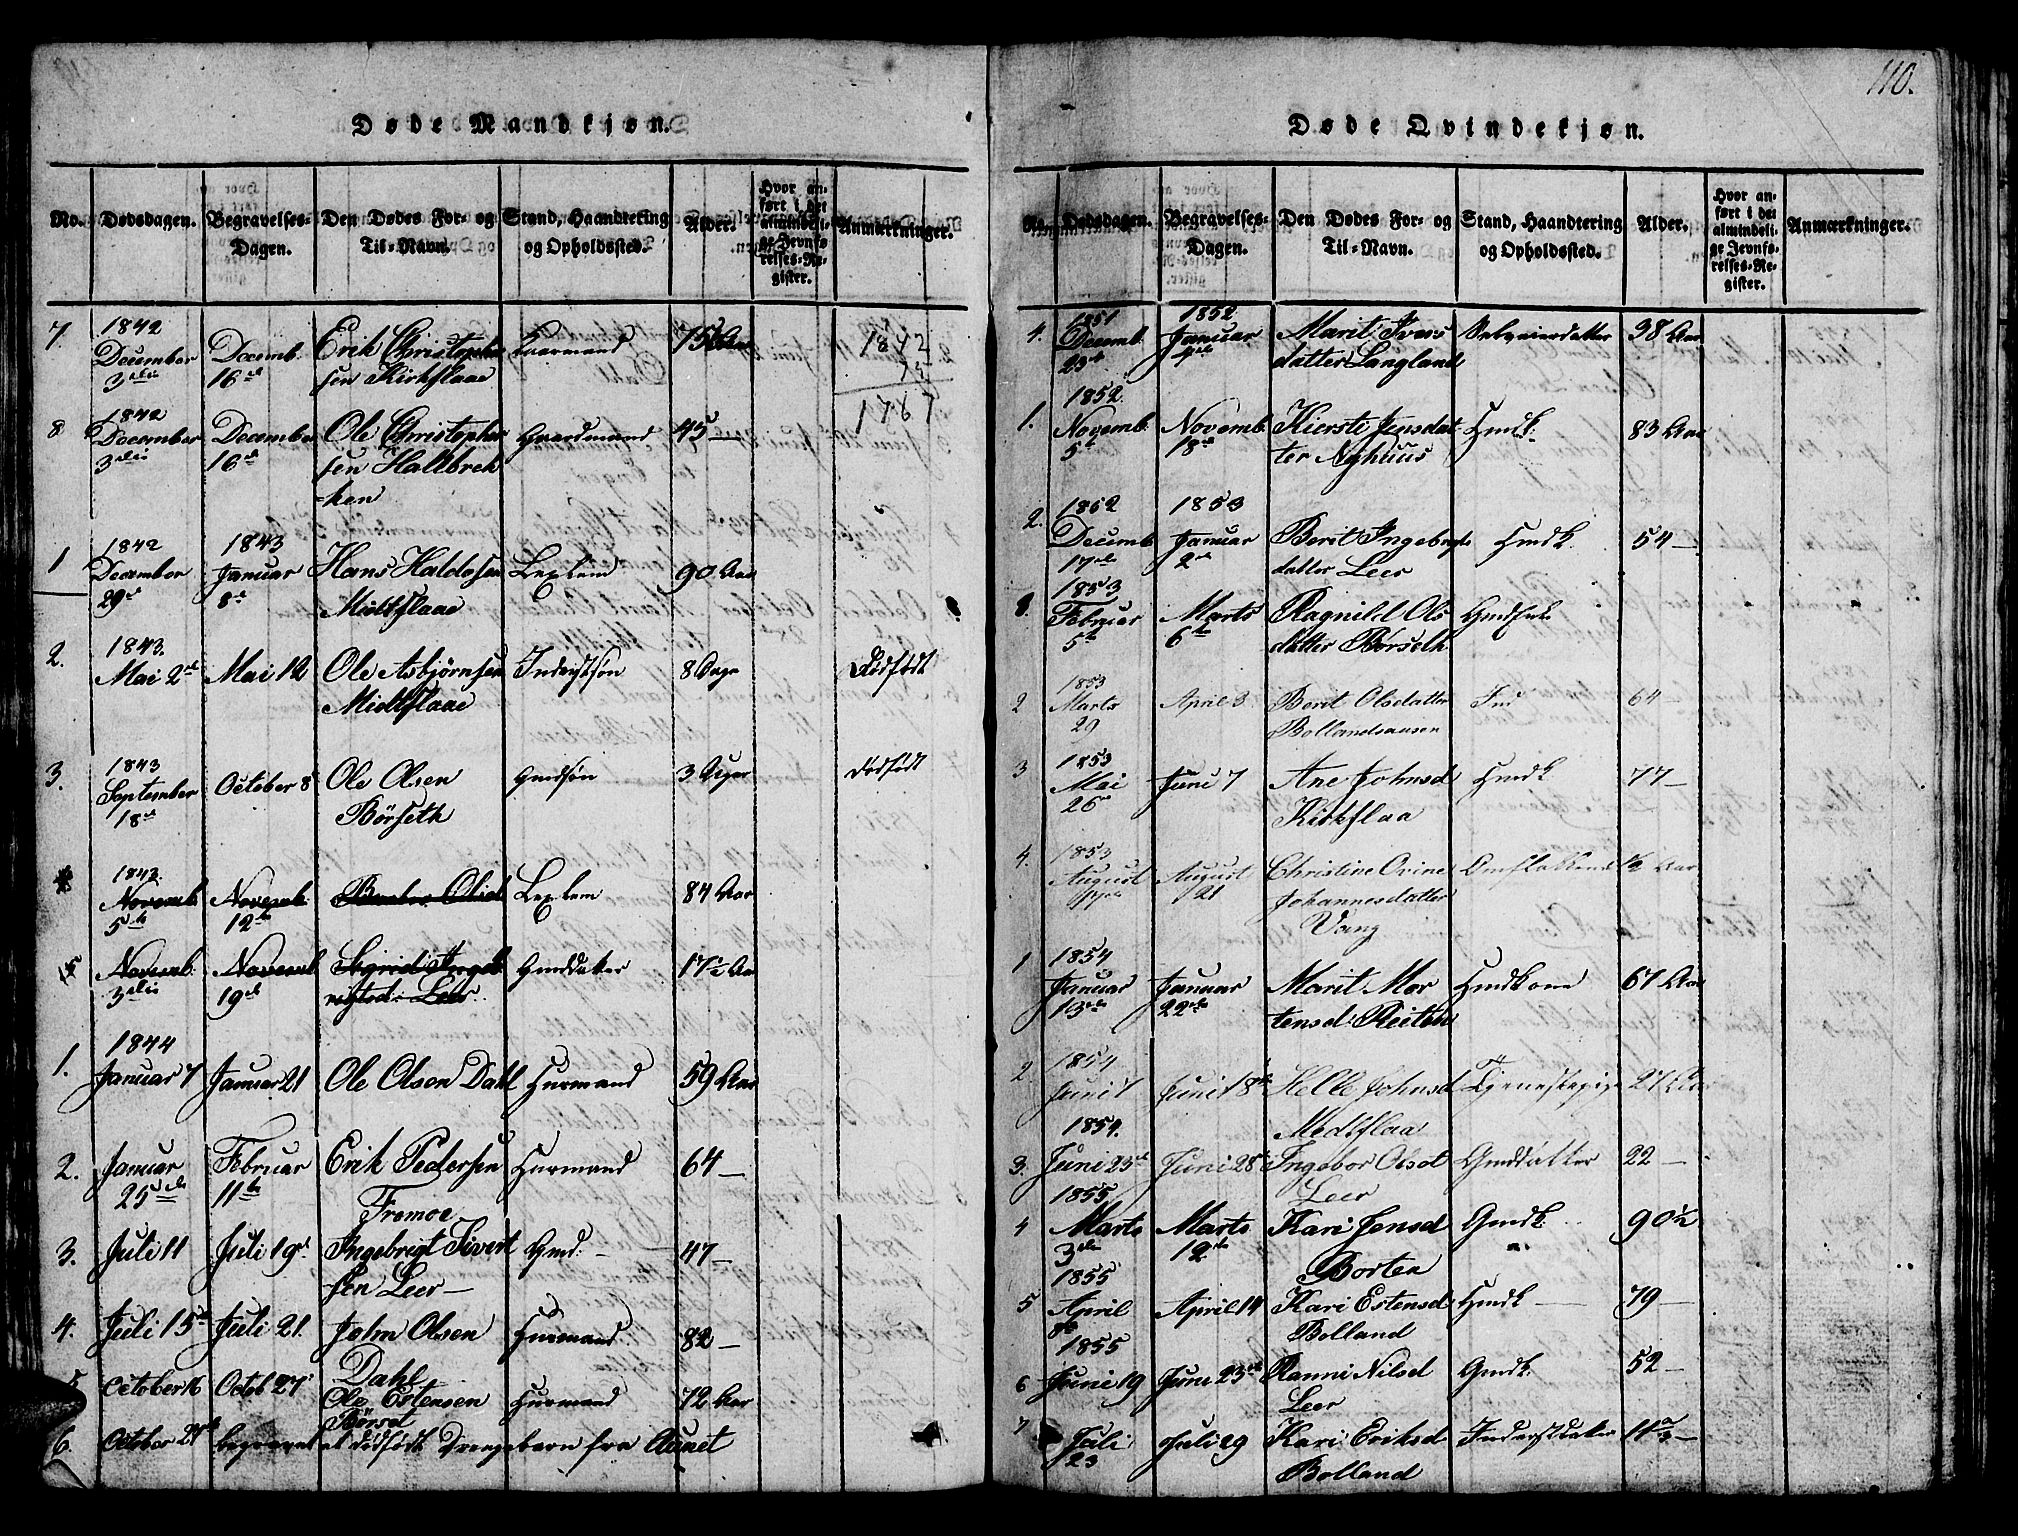 110.
Døde Mandkjøn.
No. Dødsdagen. Begravelses-Dagen. Den Dødes For- og Til-Navn. Stand, Haandtering og Opholdssted. Alder. Hvor anført i det almindelige Jevnførelses-Register. Anmærkninger.
7 1842 December 3die Decemb. 16de Erik Christophersen Kirkflaae Huusmand 75 Aar 1842
75
1767
8 1842 December 3die December 16de Ole Christophersen Haltbrekken Gaardmand 45 —
1 1842 December 29de 1843 Januar 8de Hans Haldosen Midtflaae Leylem 90 Aar
2. 1843. Mai 2de Mai 12 Ole Asbjørnsen Midtflaae 8 Dage
3. 1843 September 18de October 8de Ole Olsen Børseth Gmdsøn 3 Uger
1843. Novemb. 5te Novemb. 12te Olsd Leylem 84 Aar
5 Novemb. 3die Novemb. 19de Sigrid Ingebrigtsd: Leer Gmddatter 17½ Aar
1. 1844 Januar 7 Januar 21 Ole Olsen Dahl Huusmand 59 Aar
2. Januar 25de Februar 11te Erik Pedersen Fremoe Huusmand 64 —
3. Juli 11 Juli 19de Ingebrigt Sivertsen Leer — Gmd: — 47 —
4. Juli 15de Juli 21. John Olsen Dahl Huusmand 82 —
5 October 16 Octob 27 Ole Estensen Børsel Huusmand 72 Aar
6. October 27de begravet et dødfødt Drengebarn fra Aunet
Døde Qvindekjøn.
No. Dødsdagen. Begravelses-Dagen. Den Dødes For- og Til-Navn. Stand, Haandtering og Opholdssted. Alder. Hvor anført i det almindelige Jevnførelses-Register. Anmærkninger.
4. 1851 Decemb. 23de 1852 Januar Marit Iversdatter Langland 38 Aar
1. 1852. Novemb. 5te Novemb. 18de Kiersti Jensdatter Nyhuus Hmdk. 83 Aar
2. 1852 Decemb. 17de 1853 Januar 2de Berit Ingebrigtsdatter Leer Hmdk. 54 —
1853 Februar 5te Marts 6te Ragnild Olsdatter Børseth
2 1853 Marts 29 April 3 Berit Olsdatter Bollandsaunen Ind 64 —
3 1853 Mai 26de Juni 7 Ane Johnsd Kirkflaa Hmdk 77 —
4. 1853 August August 21 Christine Ovine Johannesdatter Vang ½ Aar
1 1854 Januar 13de Januar 22de Marit Mortensd: Reiten Hmdkone 67 Aar
2. 1854 Juni 7 Juni 18de Helle Johnsd Medtflaa Tjenestepige 27 Aar
3. 1854. Juni 23de Juni 28de Ingebor Olsdt Leer Gmddatter 22 —
4 1855 Marts 3die Marts 12te Kari Jensd Borten Gmdk: 90½
5 1855 April 8de April 14 Kari Estensd Bolland Hmdk — 79 —
6 1855 Juni 19 Juni 23de Ranni Nilsd Leer Gmdk. 52 —
7 Juli 23 Juli 29 Kari Eriksd Bolland